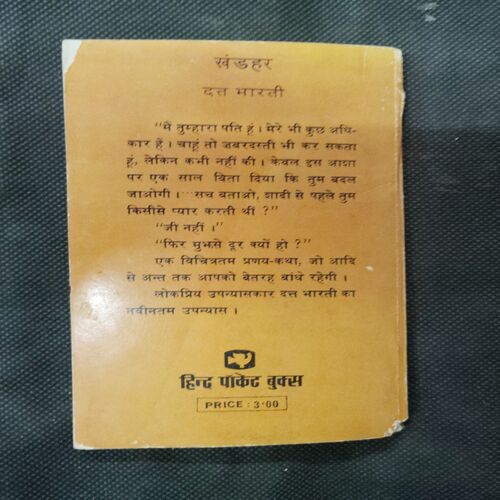 खंडहर
दत्त भारती
"मैं तुम्हारा पति हूं। मेरे भी कुछ अधि-
कार हैं। चाहूं तो जबरदस्ती भी कर सकता
हूं, लेकिन कभी नहीं की। केवल इस आशा
पर एक साल बिता दिया कि तुम बदल
जाओगी।...सच बताओ, शादी से पहले तुम
किसीसे प्यार करती थीं ?"
"जी नहीं।"
"फिर मुझसे दूर क्यों हो ?"
एक विचित्रतम प्रणय-कथा, जो आदि
से अन्त तक आपको बेतरह बांधे रहेगी।
लोकप्रिय उपन्यासकार दत्त भारती का
नवीनतम उपन्यास।
हिन्द पॉकेट बुक्स
PRICE : 3·00